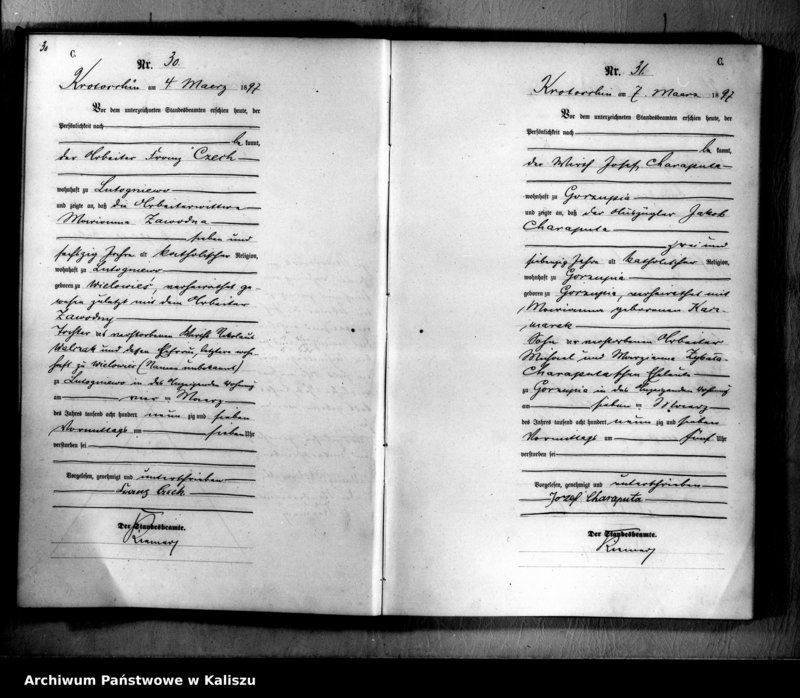 30
C.
Nr. 30.
Krotoschin am 4 Maerz 1897
Vor dem unterzeichneten Standesbeamten erschien heute, der
Persönlichkeit nach
be kannt,
der Arbeiter Franz Czech
wohnhaft zu Lutogniewo
und zeigte an, daß die Arbeiterwittwe
Marianna Zawodna
sieben und
sechszig Jahre alt katholischer Religion,
wohnhaft zu Lutogniewo
geboren zu Wielowies, verheirathet ge-
wesen zuletzt mit dem Arbeiter
Zawodny
Tochter des verstorbenen Wirths Nikolaus
Walczak und dessen Ehefrau, letztere wohn-
haft zu Wielowies (Namen unbekannt)
zu Lutogniewo in der Wohnung
am vier Maerz
des Jahres tausend acht hundert neun zig und sieben
Vormittags um sieben Uhr
verstorben sei
Vorgelesen, genehmigt und unterschrieben
Franz Czech
Der Standesbeamte.
C.
Nr. 31.
Krotoschin am 7. Maerz 1897
Vor dem unterzeichneten Standesbeamten erschien heute, der
Persönlichkeit nach
be kannt,
der Wirth Josef Charaputa
wohnhaft zu Gorzupia
und zeigte an, daß der Auszügler Jakob
Charaputa
zwei und
siebenzig Jahre alt katholischer Religion,
wohnhaft zu Gorzupia
geboren zu Gorzupia, verheirathet mit
Marianna geborenen Kacz-
marek
Sohn der verstorbenen Arbeiter
Michael und Marzianna
Charaputa'schen Eheleute
zu Gorzupia in der Wohnung
am sieben Maerz
des Jahres tausend acht hundert neun zig und sieben
Vormittags um fünf Uhr
verstorben sei
Vorgelesen, genehmigt und unterschrieben
Jozef Charaputa
Der Standesbeamte.
Archiwum Państwowe w Kaliszu